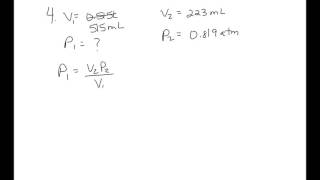 4. V₁ = 515mL
V₂ = 223 mL
P₁ = ?
P₂ = 0.819 atm
P₁ = V₂P₂ / V₁